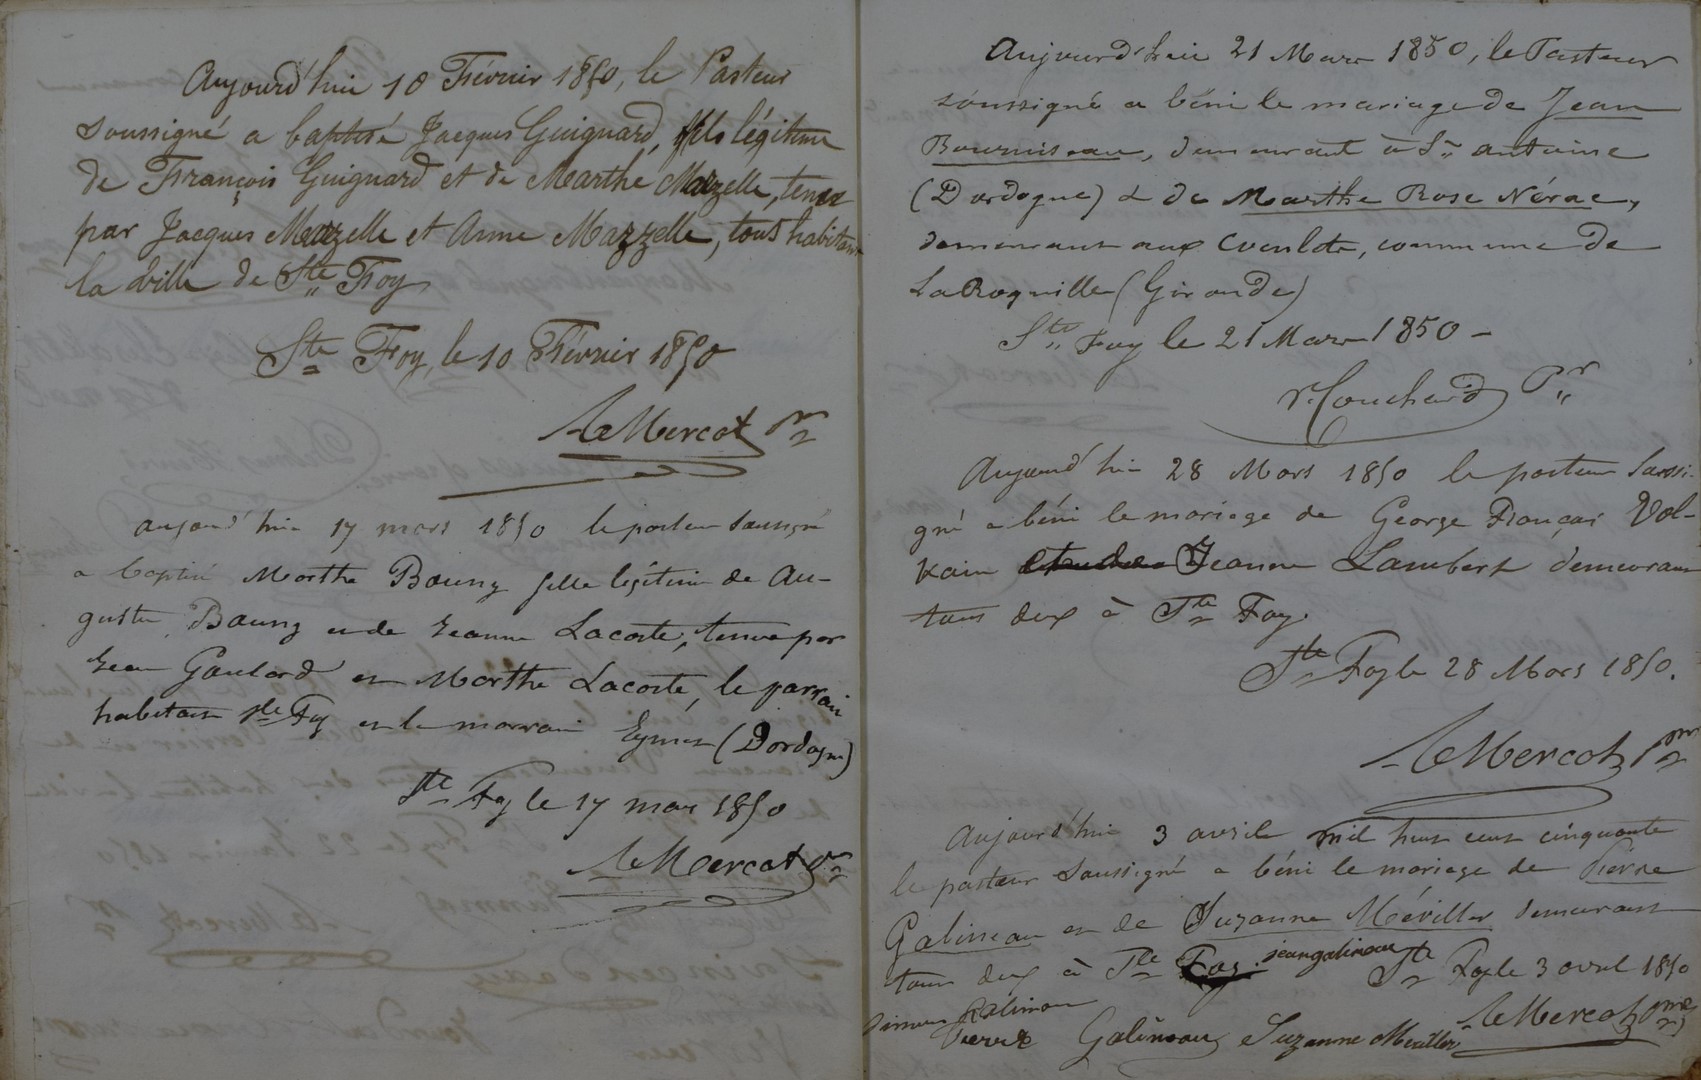 Aujourd'hui 10 Février 1850, le Pasteur
soussigné a baptisé Jacques Guignard, fils légitime
de François Guignard et de Marthe Mazelle, tenu
par Jacques Mazelle et Anne Mazzelle, tous habitant
la ville de Ste Foy
Ste Foy, le 10 Février 1850
Le Mercat pr
aujourd'hui 17 mars 1850 le pasteur soussigné
a baptisé Marthe Bauny fille légitime de Au-
guste Bauny et de Jeanne Lacoste, tenue par
Jean Goulard et Marthe Lacoste, le parrain
habitant Ste Foy et la marraine Eymet (Dordogne)
Ste Foy le 17 mars 1850
Le Mercat pr
Aujourd'hui 21 Mars 1850, le Pasteur
soussigné a béni le mariage de Jean
demeurant à St antoine
(Dordogne) & de Marthe Rose Nérac,
demeurant aux commune de
La Roquille (Gironde)
Ste Foy le 21 Mars 1850 -
Couchard Pr
Aujourd'hui 28 Mars 1850 le pasteur soussi-
gné a béni le mariage de George François Vol-
Jeanne Lambert demeurant
tous deux à Ste Foy.
Ste Foy le 28 Mars 1850.
Le Mercat pr
Aujourd'hui 3 avril mil huit cent cinquante
le pasteur soussigné a béni le mariage de Pierre
Galineau et de Suzanne Méviller demeurant
tous deux à Ste Foy. jean galineau Ste Foy le 3 avril 1850
galineau Le Mercat pr
Pierre Galineau Suzanne Meviller